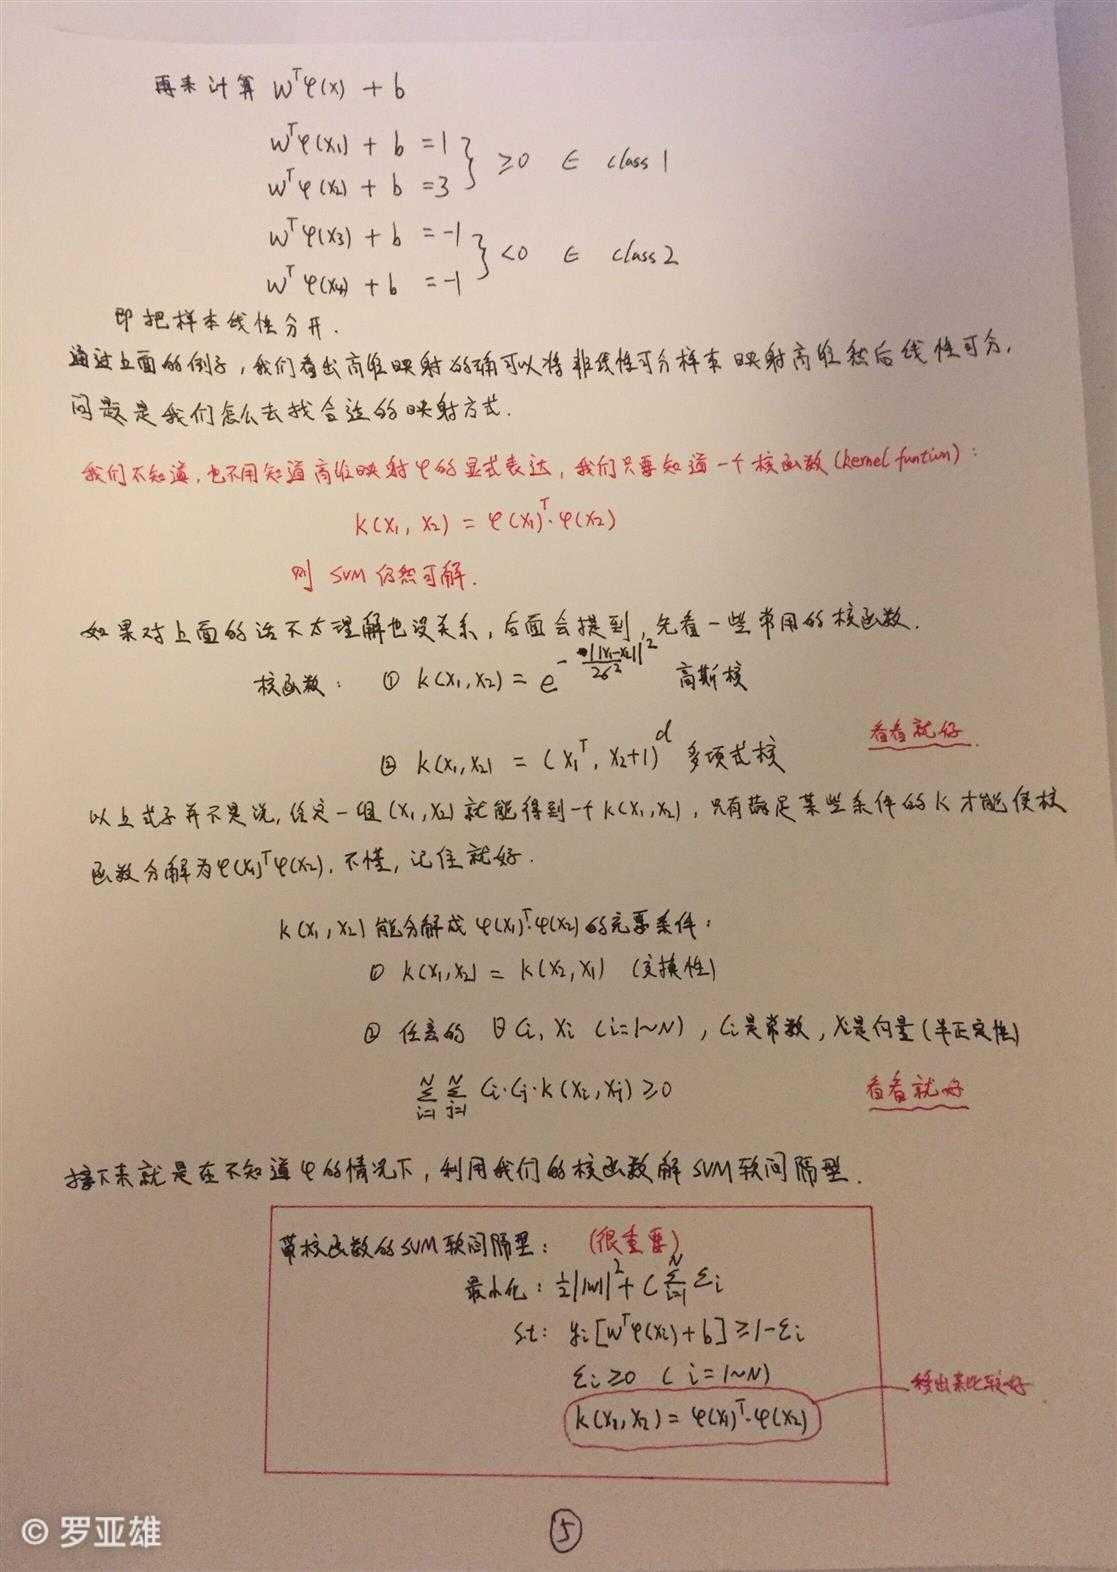 再来计算 wᵀφ(x) + b
wᵀφ(x₁) + b = 1
wᵀφ(x₂) + b = 3 } ≥0 ∈ class 1
wᵀφ(x₃) + b = -1
wᵀφ(x₄) + b = -1 } <0 ∈ class 2
即把样本线性分开.
通过上面的例子,我们看出高维映射的确可以将非线性可分样本映射高维然后线性可分,
问题是我们怎么去找合适的映射方式.
我们不知道,也不用知道高维映射φ的显式表达,我们只要知道一个核函数(kernel funtion):
k(x₁, x₂) = φ(x₁)ᵀ·φ(x₂)
则 SVM 仍然可解.
如果对上面的话不太理解也没关系,后面会提到,先看一些常用的核函数.
核函数: ① k(x₁,x₂) = e^(-||x₁-x₂||²/2σ²) 高斯核
看看就好.
② k(x₁,x₂) = (x₁ᵀ, x₂+1)^d 多项式核
以上式子并不是说,给定一组(x₁,x₂)就能得到一个k(x₁,x₂),只有满足某些条件的K才能使核
函数分解为φ(x₁)ᵀφ(x₂). 不懂,记住就好.
k(x₁,x₂)能分解成φ(x₁)ᵀ·φ(x₂)的充要条件:
① k(x₁,x₂) = k(x₂,x₁) (交换性)
② 任意的 ∀ Ci, xi (i=1~N), Ci是常数, xi是向量(半正定性)
∑ᵢ₌₁ᴺ ∑ⱼ₌₁ᴺ Ci·Cj·k(xi,xj) ≥0 看看就好
接下来就是在不知道φ的情况下,利用我们的核函数解SVM软间隔型.
带核函数的SVM软间隔型: (很重要)
最小化: ½||w||² + C ∑ᵢ₌₁ᴺ εi
st: yi[wᵀφ(xi)+b] ≥1-εi
εi ≥0 (i=1~N)
k(x₁,x₂) = φ(x₁)ᵀ·φ(x₂) 移出来比较好
⑤
© 罗亚雄